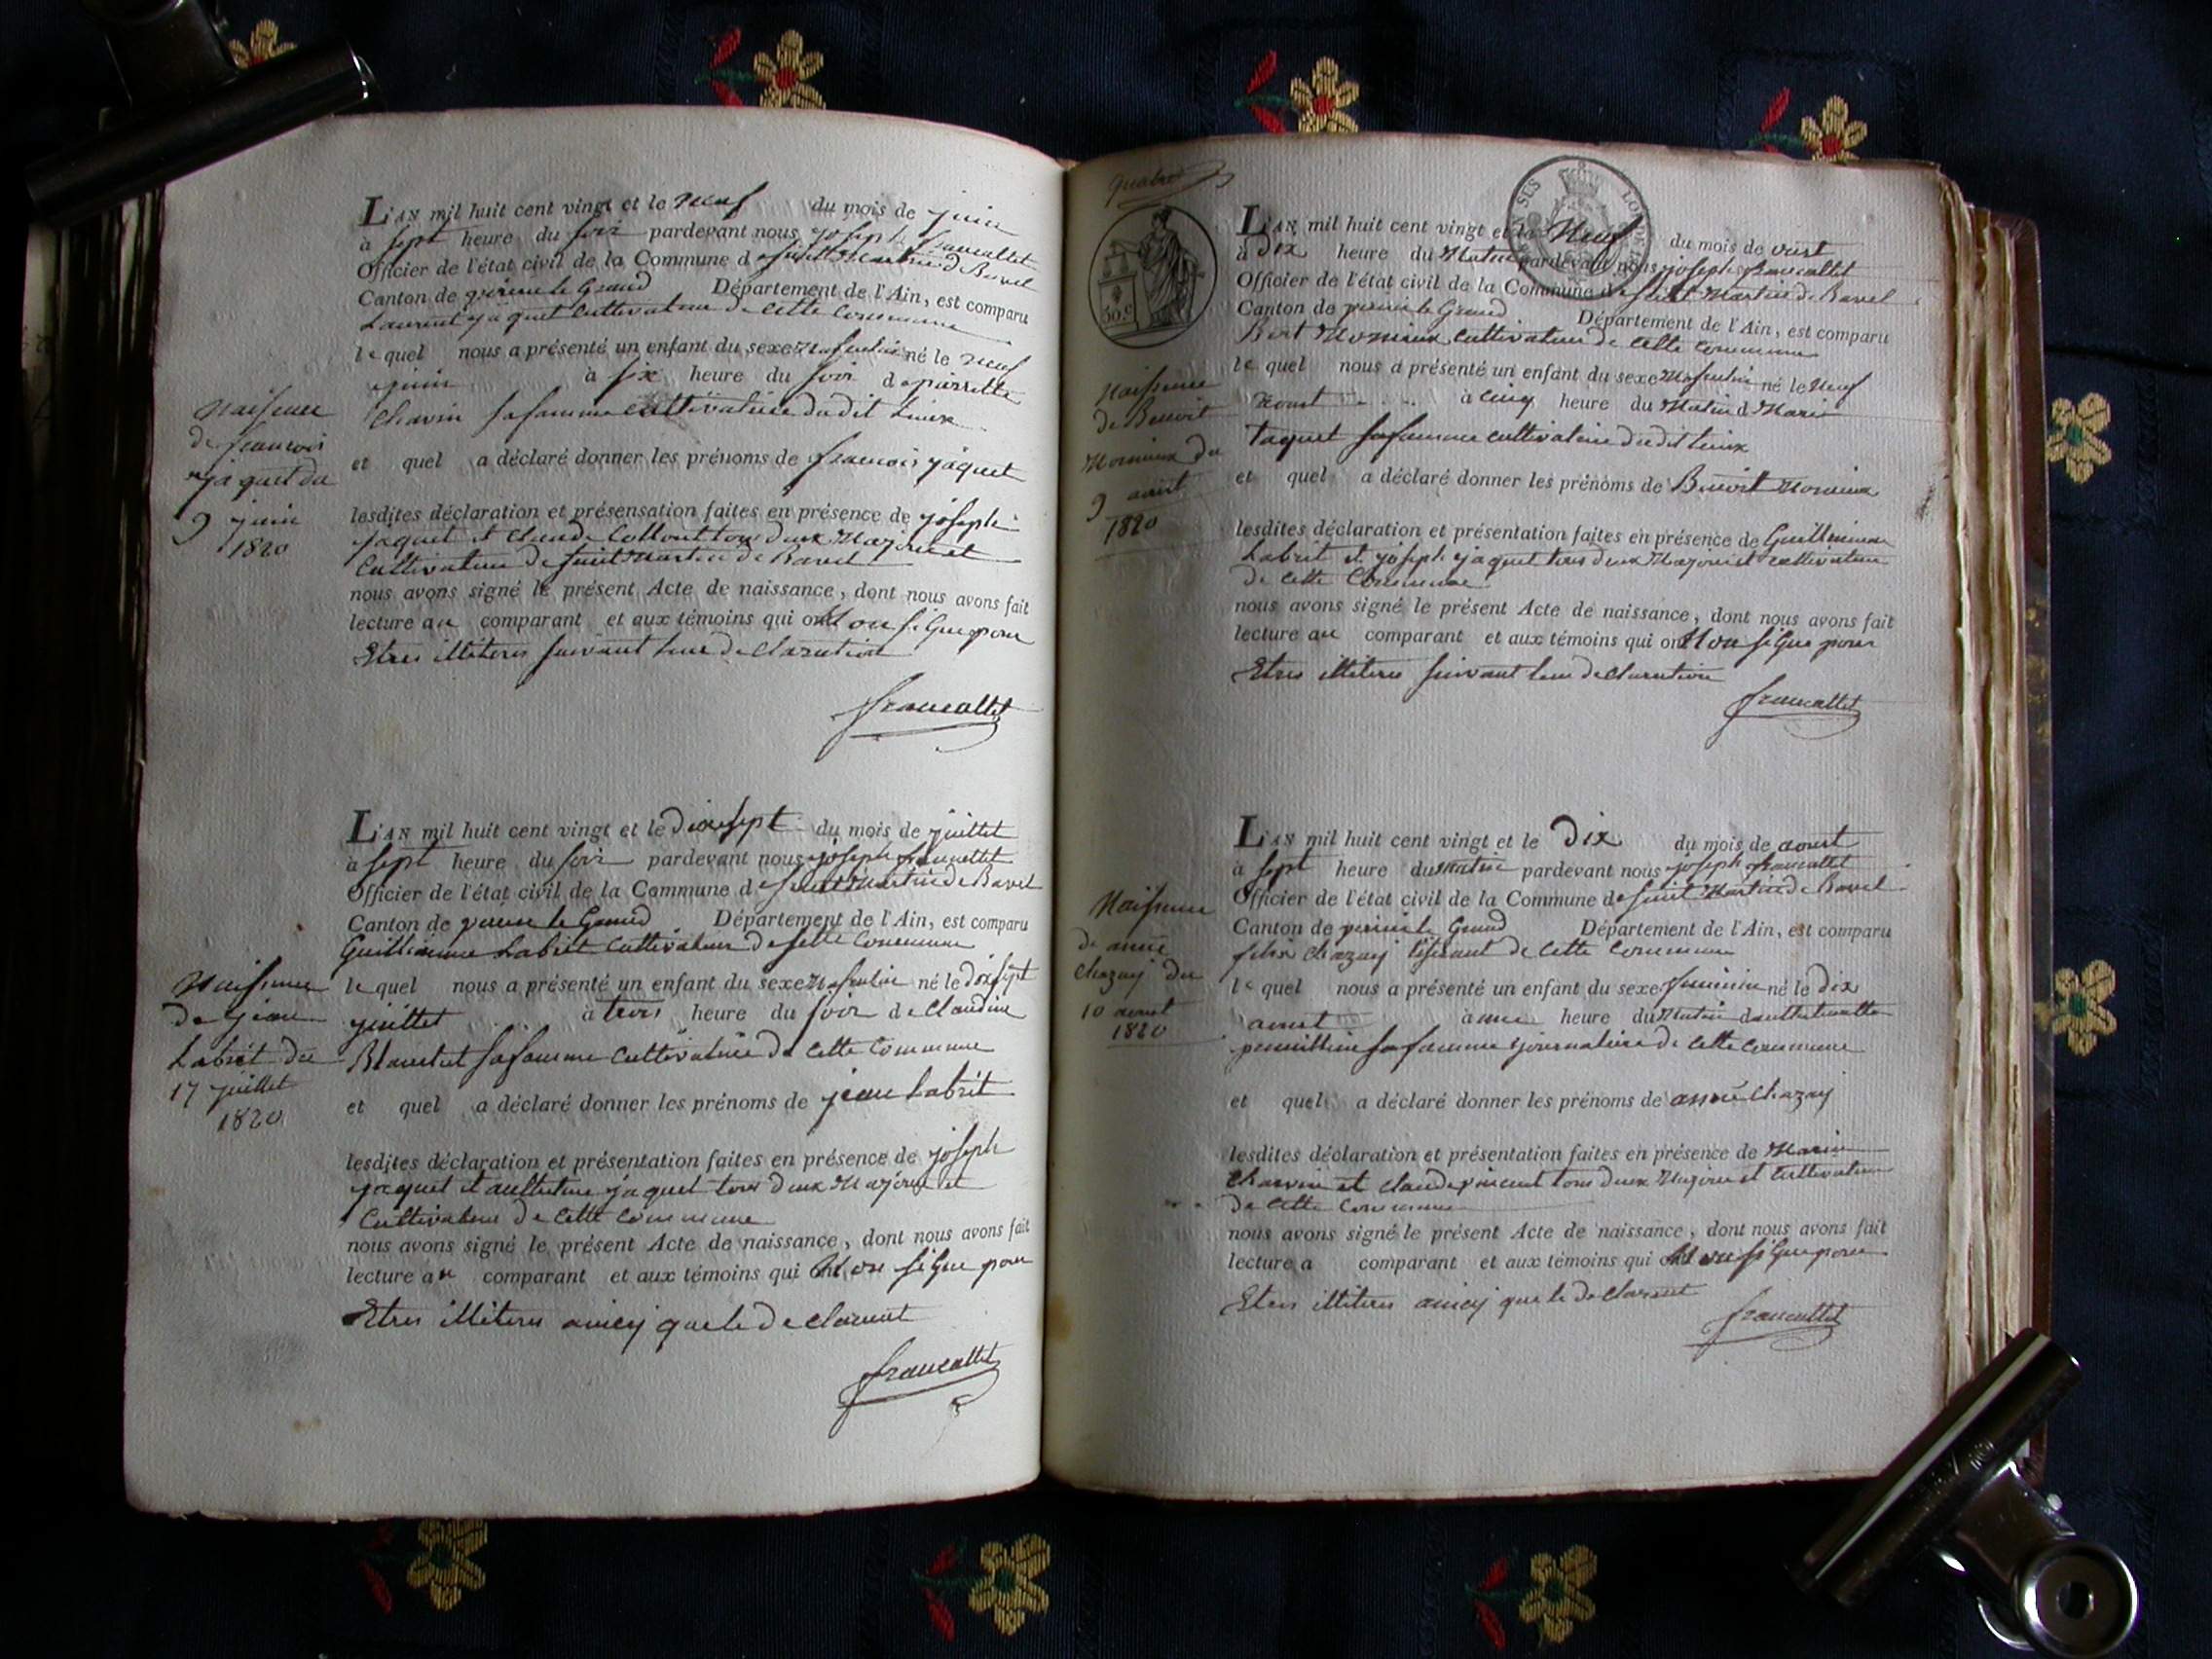 L'AN mil huit cent vingt et le Neuf du mois de juin
à sept heure du soir pardevant nous joseph francallet
Officier de l'état civil de la Commune de saint Martin de Bavel
Canton de virieu le Grand Département de l'Ain, est comparu
Laurent jaquet Cultivateur de Cette Commune
le quel nous a présenté un enfant du sexe Masculin né le Neuf
juin à six heure du soir de pierrette
Chavin sa famme Cultivatrice du dit Lieux
et quel a déclaré donner les prénoms de francois jaquet
lesdites déclaration et présensation faites en présence de joseph
jaquet et Claude tous deux Majeur et
Cultivateur de saint Martin de Bavel
nous avons signé le présent Acte de naissance, dont nous avons fait
lecture au comparant et aux témoins qui ont Non signe pour
Etres illiteres suivant leur declaration
francallet
Naissance
de francois
jaquet du
9 juin
1820
L'AN mil huit cent vingt et le dixsept du mois de juillet
à sept heure du soir pardevant nous joseph francallet
Officier de l'état civil de la Commune de saint Martin de Bavel
Canton de virieu le Grand Département de l'Ain, est comparu
Guilliaume Labrit Cultivateur de sette Commune
le quel nous a présenté un enfant du sexe Masculin né le dixsept
juillet à trois heure du soir de Claudine
sa famme Cultivatrice de cette Commune
et quel a déclaré donner les prénoms de jean Labrit
lesdites déclaration et présentation faites en présence de joseph
jaquet et jaquet tous deux Majeur et
Cultivateur de Cette Commune
nous avons signé le présent Acte de naissance, dont nous avons fait
lecture au comparant et aux témoins qui ont Non signe pour
Etres illiteres aincy que le declarent
francallet
Naissance
de jean
Labrit du
17 juillet
1820
Quatre
30.c
L'AN mil huit cent vingt et le Neuf du mois de oust
à Dix heure du Matin pardevant nous joseph francallet
Officier de l'état civil de la Commune de saint Martin de Bavel
Canton de virieu le Grand Département de l'Ain, est comparu
Monieux Cultivateur de Cette Commune
le quel nous a présenté un enfant du sexe Masculin né le Neuf
aoust à cinq heure du Matin de Marie
Jaquet sa famme cultivatrice du dit Lieux
et quel a déclaré donner les prénoms de Benoit Monieux
lesdites déclaration et présentation faites en présence de Guilliaume
Labrit et joseph jaquet tous deux Majeur et cultivateur
de Cette Commune
nous avons signé le présent Acte de naissance, dont nous avons fait
lecture au comparant et aux témoins qui ont Non signe pour
Etres illiteres suivant leur declaration
francallet
Naissance
de Benoit
Monieux du
9 aoust
1820
L'AN mil huit cent vingt et le Dix du mois de aoust
à sept heure du matin pardevant nous joseph francallet
Officier de l'état civil de la Commune de saint Martin de Bavel
Canton de virieu le Grand Département de l'Ain, est comparu
felix Chazay tisserant de Cette Commune
le quel nous a présenté un enfant du sexe feminin né le dix
aoust à une heure du Matin
sa famme journaliere de Cette Commune
et quel a déclaré donner les prénoms de anne Chazay
lesdites déclaration et présentation faites en présence de Marin
Charvin et Claude vincent tous deux Majeur et Cultivateur
de Cette Commune
nous avons signé le présent Acte de naissance, dont nous avons fait
lecture a comparant et aux témoins qui ont Non signe pour
Etres illiteres aincy que le declarent
francallet
Naissance
de anne
Chazay du
10 aoust
1820